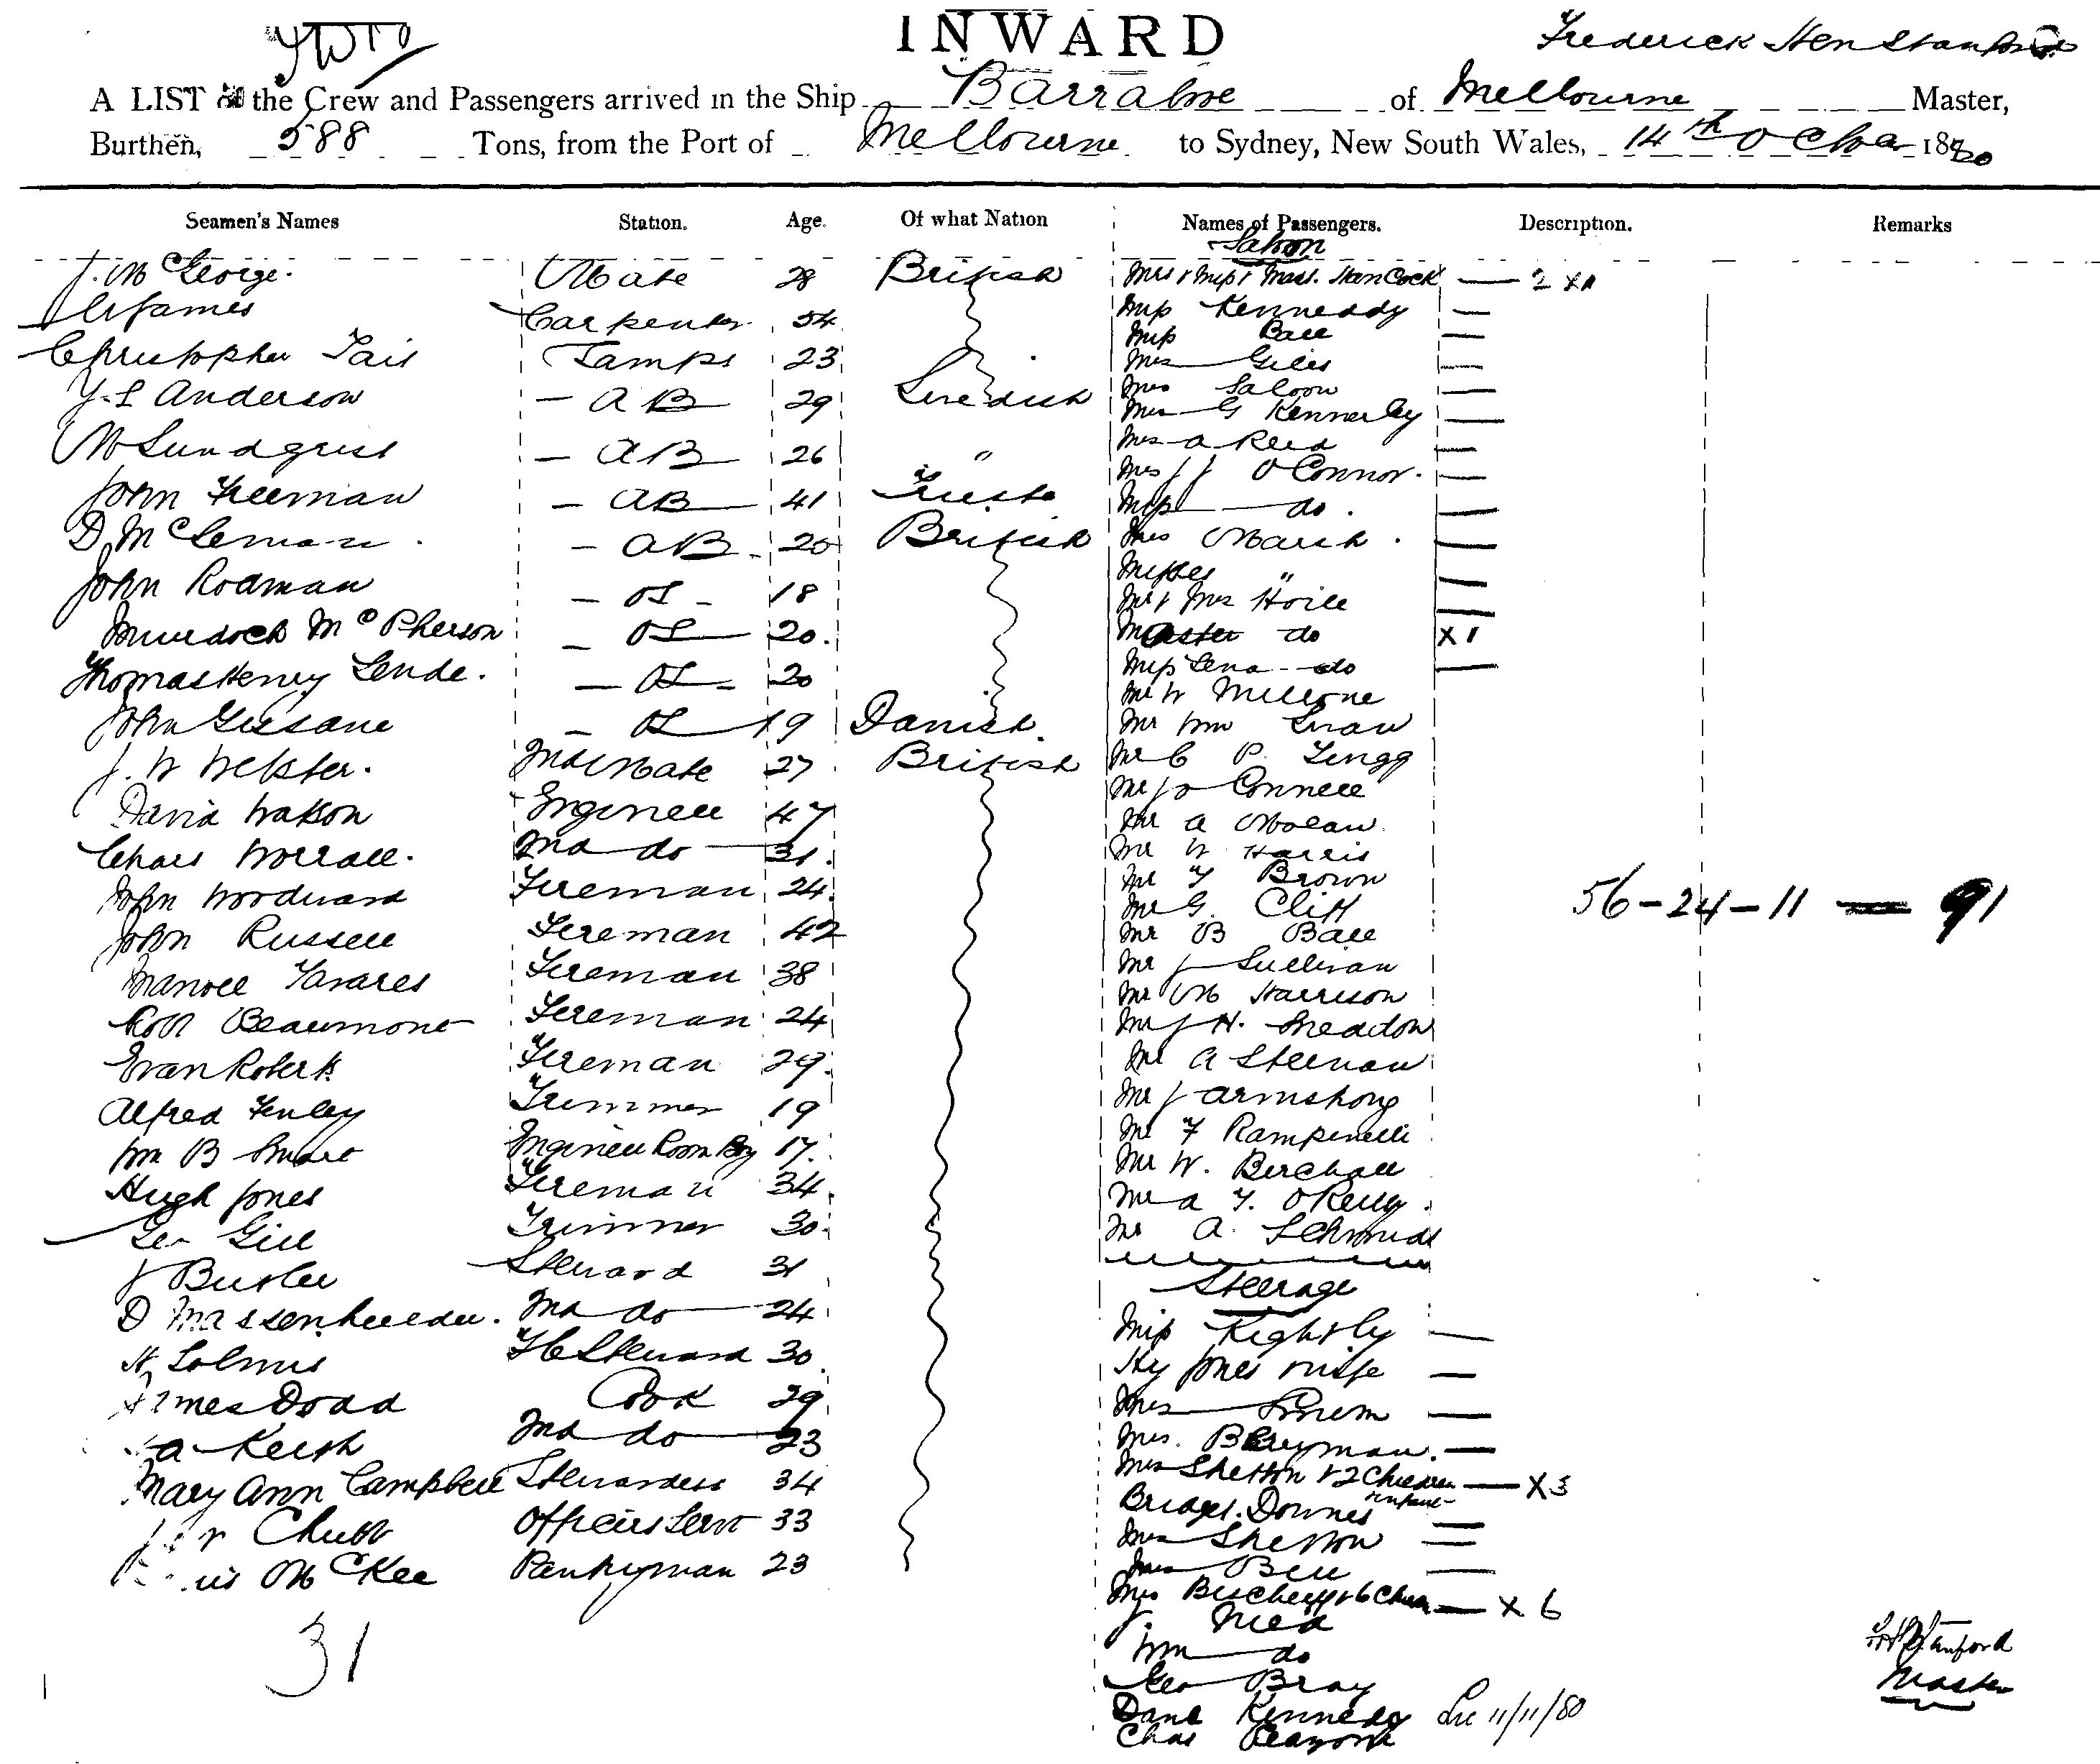 INWARD
Frederick Hen Stanford
A LIST of the Crew and Passengers arrived in the Ship Barrabool of Melbourne Master,
Burthen, 588 Tons, from the Port of Melbourne to Sydney, New South Wales, 14th October 1880
Seamen's Names Station. Age. Of what Nation Names of Passengers. Description. Remarks
Saloon
J. McGeorge. Mate 28 British
James Carpenter 54
Christopher Tait Lamps 23
A B 29 Swedish
Anderson
M Lundgrist A B 26 "
John Freeman AB 41 Trieste
D, McLeman AB 20 British
John Rodman OS 18
Murdoch McPherson OS 20.
Thomas Henry Lende. OS 20
John OS 19 Danish.
J. W Webster. 2nd Mate 27 British
David Watson Engineer 47
Chars Worrall. 2nd do 31.
John Woodward Fireman 24.
John Russell Fireman 42
Manoel Tavares Fireman 38
Robt Beaumont Fireman 24
Evan Roberts Fireman 29.
Alfred Fenley Trimmer 19
Wm B Engineer Room Boy 17.
Hugh Jones Fireman 34.
Geo Gill Trimmer 30.
J Butler Steward 31
D 2nd do 24
H, Steward 30
James Dodd Cook 29
a Keith 2nd do 23
Mary Ann Campbell Stewardess 34
Chubb Officers Servt 33
McKee Pantryman 23
31
Mrs & Miss & Mast. HanCock — 2 x 1
Miss Kenneddy —
Miss Ball —
Mrs Giles —
Mrs Saloon —
Mrs G Kennerley —
Mrs A Reed —
Mrs J J O Connor. —
Miss do. —
Mrs March. —
Misses " —
Mr & Mrs Hoile —
Master do x 1
Miss Lena do —
Mr W
Mr Wm
Mr C P. Lingg
Mr J O Connell
Mr A
Mr W Harris
Mr F Brown
Mr G. Cliff
Mr B Ball
Mr J Sullivan
Mr M Harrison
Mr J H.
Mr A
Mr J Armstrong
Mr F Rampinelli
Mr W. Berchall
Mr A F. O Reilly.
Mr A. Schmidt
56-24-11 — 91
Steerage
Miss Kightly —
Hy Jones wife —
Mrs —
Mrs. Berryman. —
Mrs Shelton & 2 Children — x 3
Bridget. Downes infant —
Mrs Shelton —
Mrs Bell —
Mrs & 6 Chdn — x 6
J.
Wm do
Geo Bray
Danl Kennedy 11/11/80
Chas
F H Stanford
Master